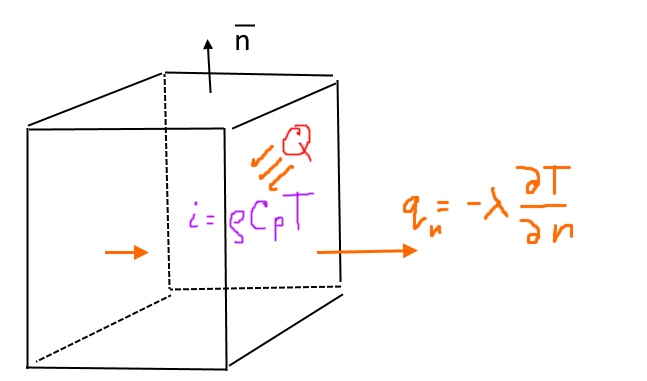 n̅
Q
i = ρCₚT
qₙ = -λ ∂T/∂n